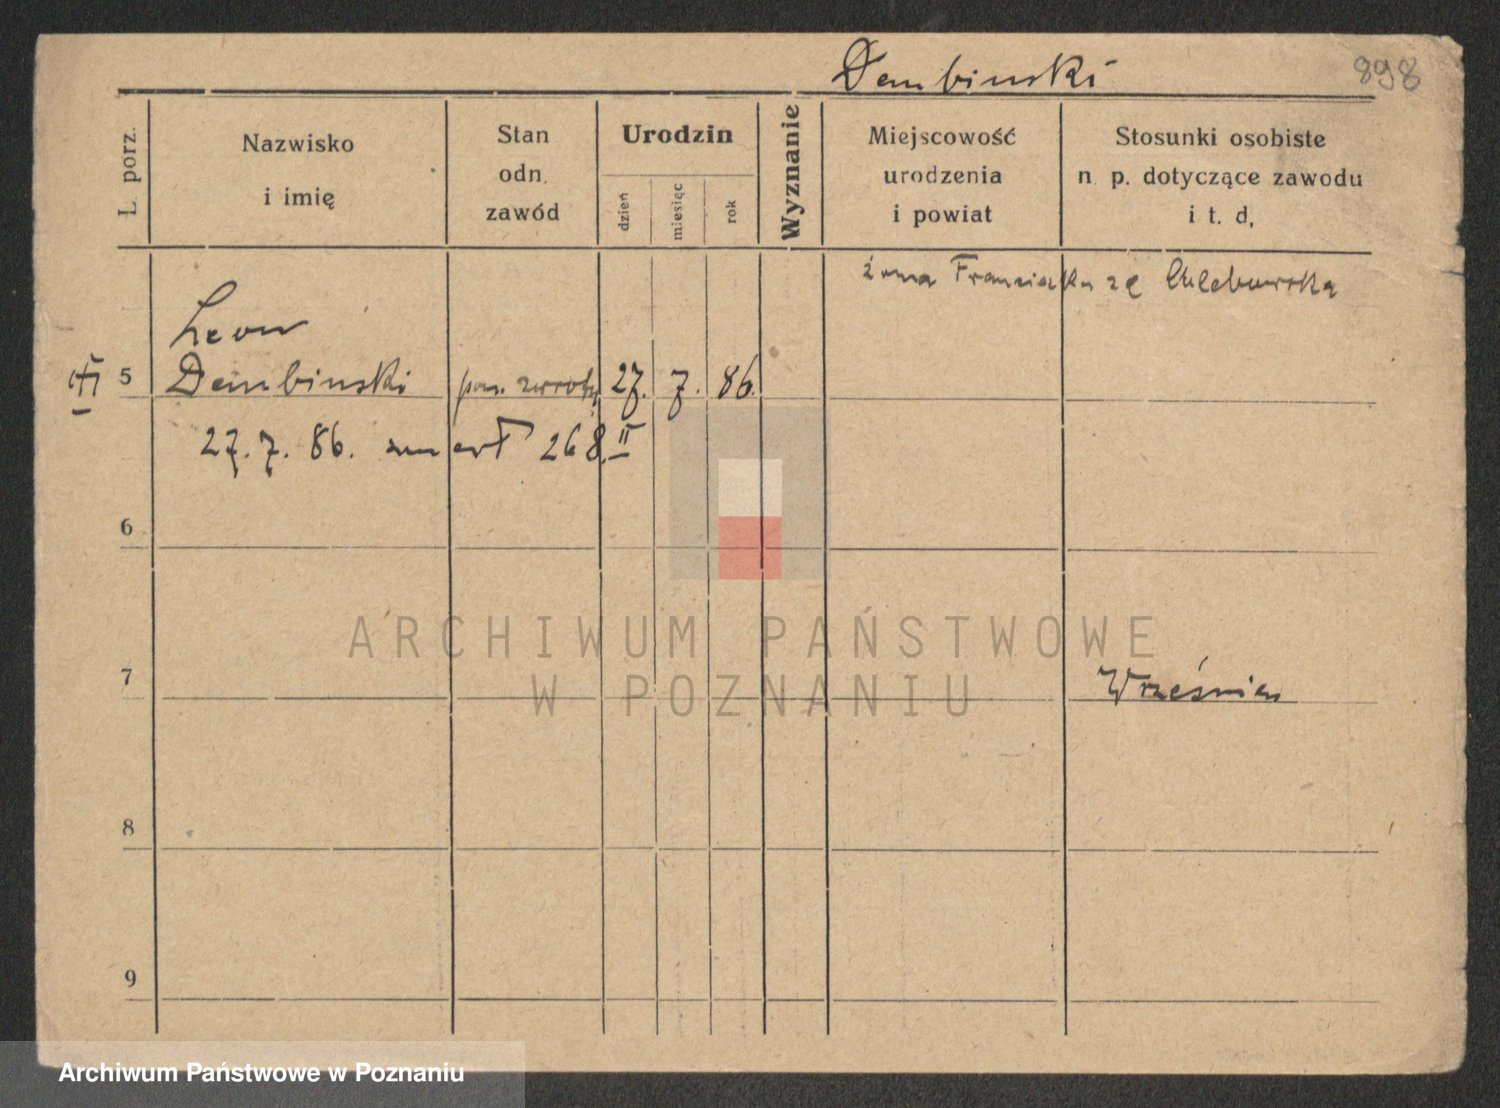 Dembinski
898
L. porz.
Nazwisko
i imię
Stan
odn.
zawód
Urodzin
dzień
miesiąc
rok
Wyznanie
Miejscowość
urodzenia
i powiat
Stosunki osobiste
n. p. dotyczące zawodu
i t. d,
żona
Leon
5 Dembinski 27. 7. 86.
27. 7. 86. 268.II
6
7
Wrześnica
8
9
ARCHIWUM PAŃSTWOWE
W POZNANIU
Archiwum Państwowe w Poznaniu